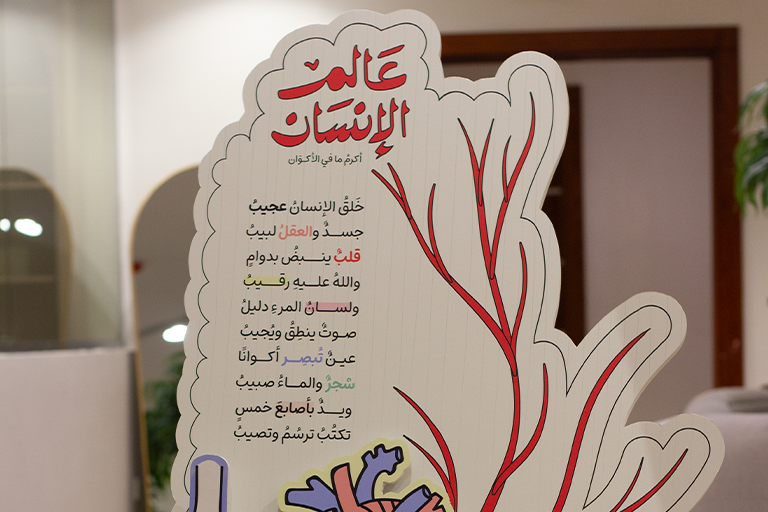 عَالم
الإنسَان
أكرمُ ما في الأكوَان
خَلقُ الإنسانُ عجيبُ
جســدٌ والعقلُ لبيبُ
قلبٌ ينـــبضُ بدوامٍ
واللهُ علــيهِ رقـــيبُ
ولســـانُ المرءِ دليلُ
صوتٌ ينطِقُ ويُجيبُ
عينٌ تُبصِــر أكــوانًا
شجرٌ والمـاءُ صبيبُ
ويــدٌ بأصابعَ خمسٍ
تكتُبُ ترسُمُ وتصيبُ